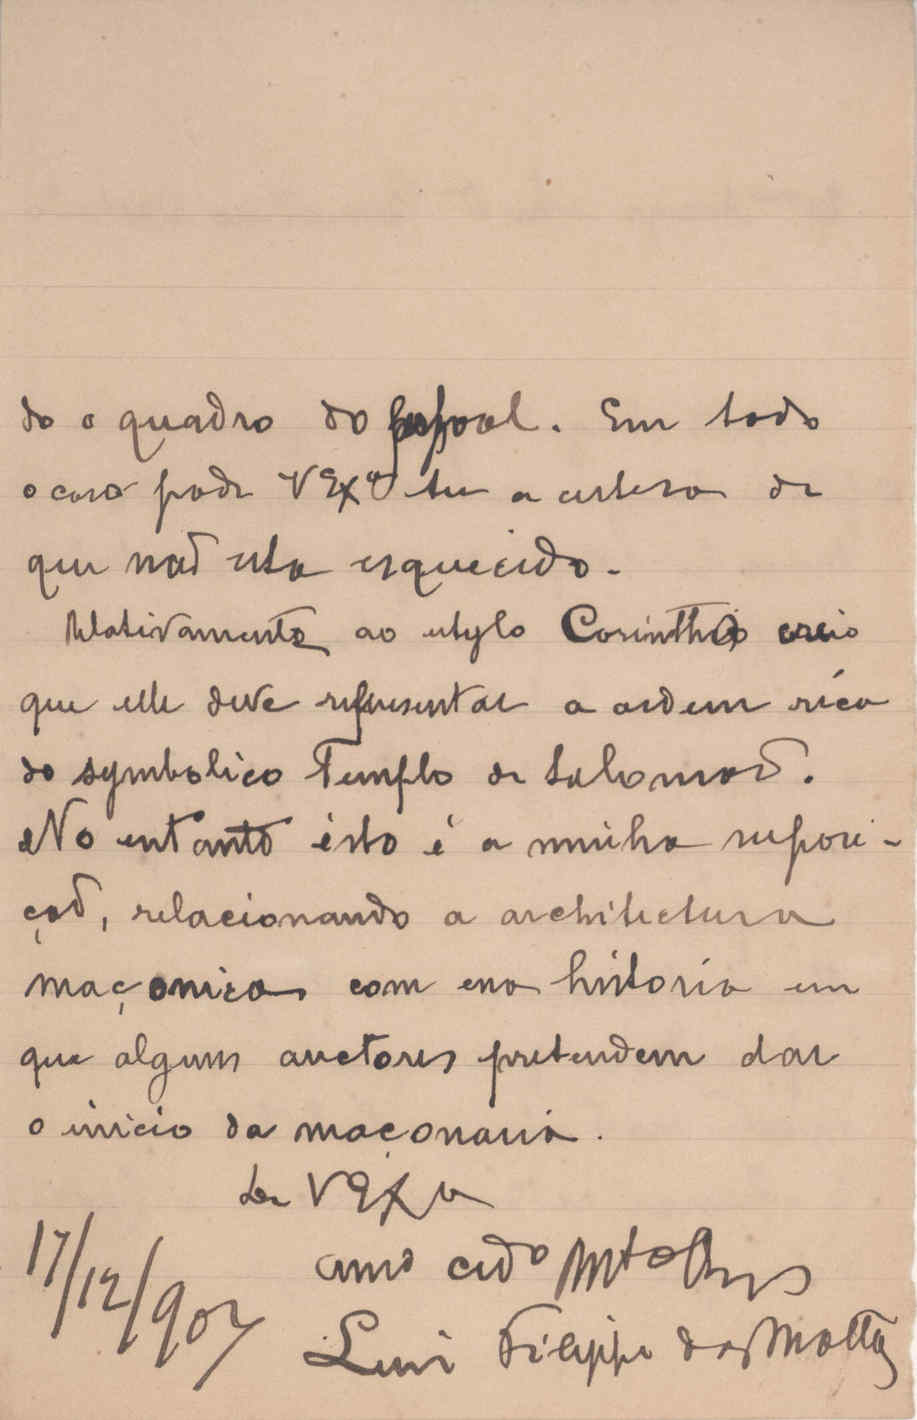 do o quadro do pessoal. Em todo
o caso pode V Exª ter a certesa de
que naõ esta esquecido.
Relativamente ao estylo Corinthio creio
que elle deve representar a ordem rica
do symbolico Templo de Salomaõ.
No entanto isto é a minha suposi-
çaõ, relacionando a architectura
maçonica com essa historia em
que alguns auctores pretendem dar
o inicio da maçonaria.
De V Exa
amo crdo Mto Obrgo
17/12/907
Luis Filippe da Motta